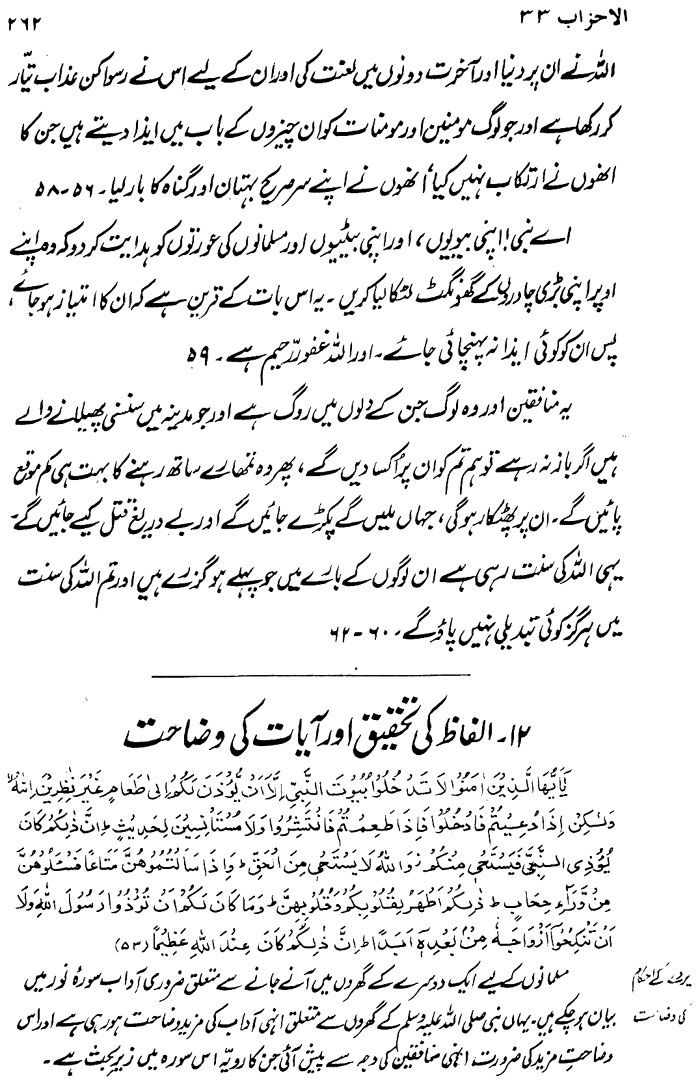 الاحزاب ۳۳
۲۶۲
اللہ نے ان پر دنیا اور آخرت دونوں میں لعنت کی اور ان کے لیے اس نے رسوا کن عذاب تیار
کر رکھا ہے اور جو لوگ مومنین اور مومنات کو ان چیزوں کے باب میں ایذا دیتے ہیں جن کا
انھوں نے ارتکاب نہیں کیا، انھوں نے اپنے سر صریح بہتان اور گناہ کا بار لیا۔ ۵۶-۵۸
اے نبی! اپنی بیویوں، اور اپنی بیٹیوں اور مسلمانوں کی عورتوں کو ہدایت کر دو کہ وہ اپنے
اوپر اپنی بڑی چادروں کے گھونگٹ لٹکا لیا کریں۔ یہ اس بات کے قرین ہے کہ ان کا امتیاز ہو جائے،
پس ان کو کوئی ایذا نہ پہنچائی جائے۔ اور اللہ غفور رّحیم ہے۔ ۵۹
یہ منافقین اور وہ لوگ جن کے دلوں میں روگ ہے اور جو مدینہ میں سنسنی پھیلانے والے
ہیں اگر باز نہ رہے تو ہم تم کو ان پر اُکسا دیں گے، پھر وہ تمھارے ساتھ رہنے کا بہت ہی کم موقع
پائیں گے۔ ان پر پھٹکار ہوگی، جہاں ملیں گے پکڑے جائیں گے اور بے دریغ قتل کیے جائیں گے۔
یہی اللہ کی سنت رہی ہے ان لوگوں کے بارے میں جو پہلے ہو گزرے ہیں اور تم اللہ کی سنت
میں ہرگز کوئی تبدیلی نہیں پاؤ گے۔ ۶۰-۶۲
۱۲۔ الفاظ کی تحقیق اور آیات کی وضاحت
يٰٓاَيُّهَا الَّذِيْنَ اٰمَنُوْا لَا تَدْخُلُوْا بُيُوْتَ النَّبِيِّ اِلَّآ اَنْ يُّؤْذَنَ لَكُمْ اِلٰى طَعَامٍ غَيْرَ نٰظِرِيْنَ اِنٰهُ
وَلٰكِنْ اِذَا دُعِيْتُمْ فَادْخُلُوْا فَاِذَا طَعِمْتُمْ فَانْتَشِرُوْا وَلَا مُسْتَاْنِسِيْنَ لِحَدِيْثٍ ط اِنَّ ذٰلِكُمْ كَانَ
يُؤْذِى النَّبِيَّ فَيَسْتَحْيٖ مِنْكُمْ ز وَاللّٰهُ لَا يَسْتَحْيٖ مِنَ الْحَقِّ ط وَاِذَا سَاَلْتُمُوْهُنَّ مَتَاعًا فَسْـَٔلُوْهُنَّ
مِنْ وَّرَآءِ حِجَابٍ ط ذٰلِكُمْ اَطْهَرُ لِقُلُوْبِكُمْ وَقُلُوْبِهِنَّ ط وَمَا كَانَ لَكُمْ اَنْ تُؤْذُوْا رَسُوْلَ اللّٰهِ وَلَآ
اَنْ تَنْكِحُوْٓا اَزْوَاجَهٗ مِنْۢ بَعْدِهٖٓ اَبَدًا ط اِنَّ ذٰلِكُمْ كَانَ عِنْدَ اللّٰهِ عَظِيْمًا (۵۳)
پردے کے احکام
کی وضاحت
مسلمانوں کے لیے ایک دوسرے کے گھروں میں آنے جانے سے متعلق ضروری آداب سورۂ نور میں
بیان ہو چکے ہیں۔ یہاں نبی صلی اللہ علیہ وسلم کے گھروں سے متعلق انہی آداب کی مزید وضاحت ہو رہی ہے اور اس
وضاحتِ مزید کی ضرورت انہی منافقین کی وجہ سے پیش آئی جن کا رویہ اس سورہ میں زیرِ بحث ہے۔